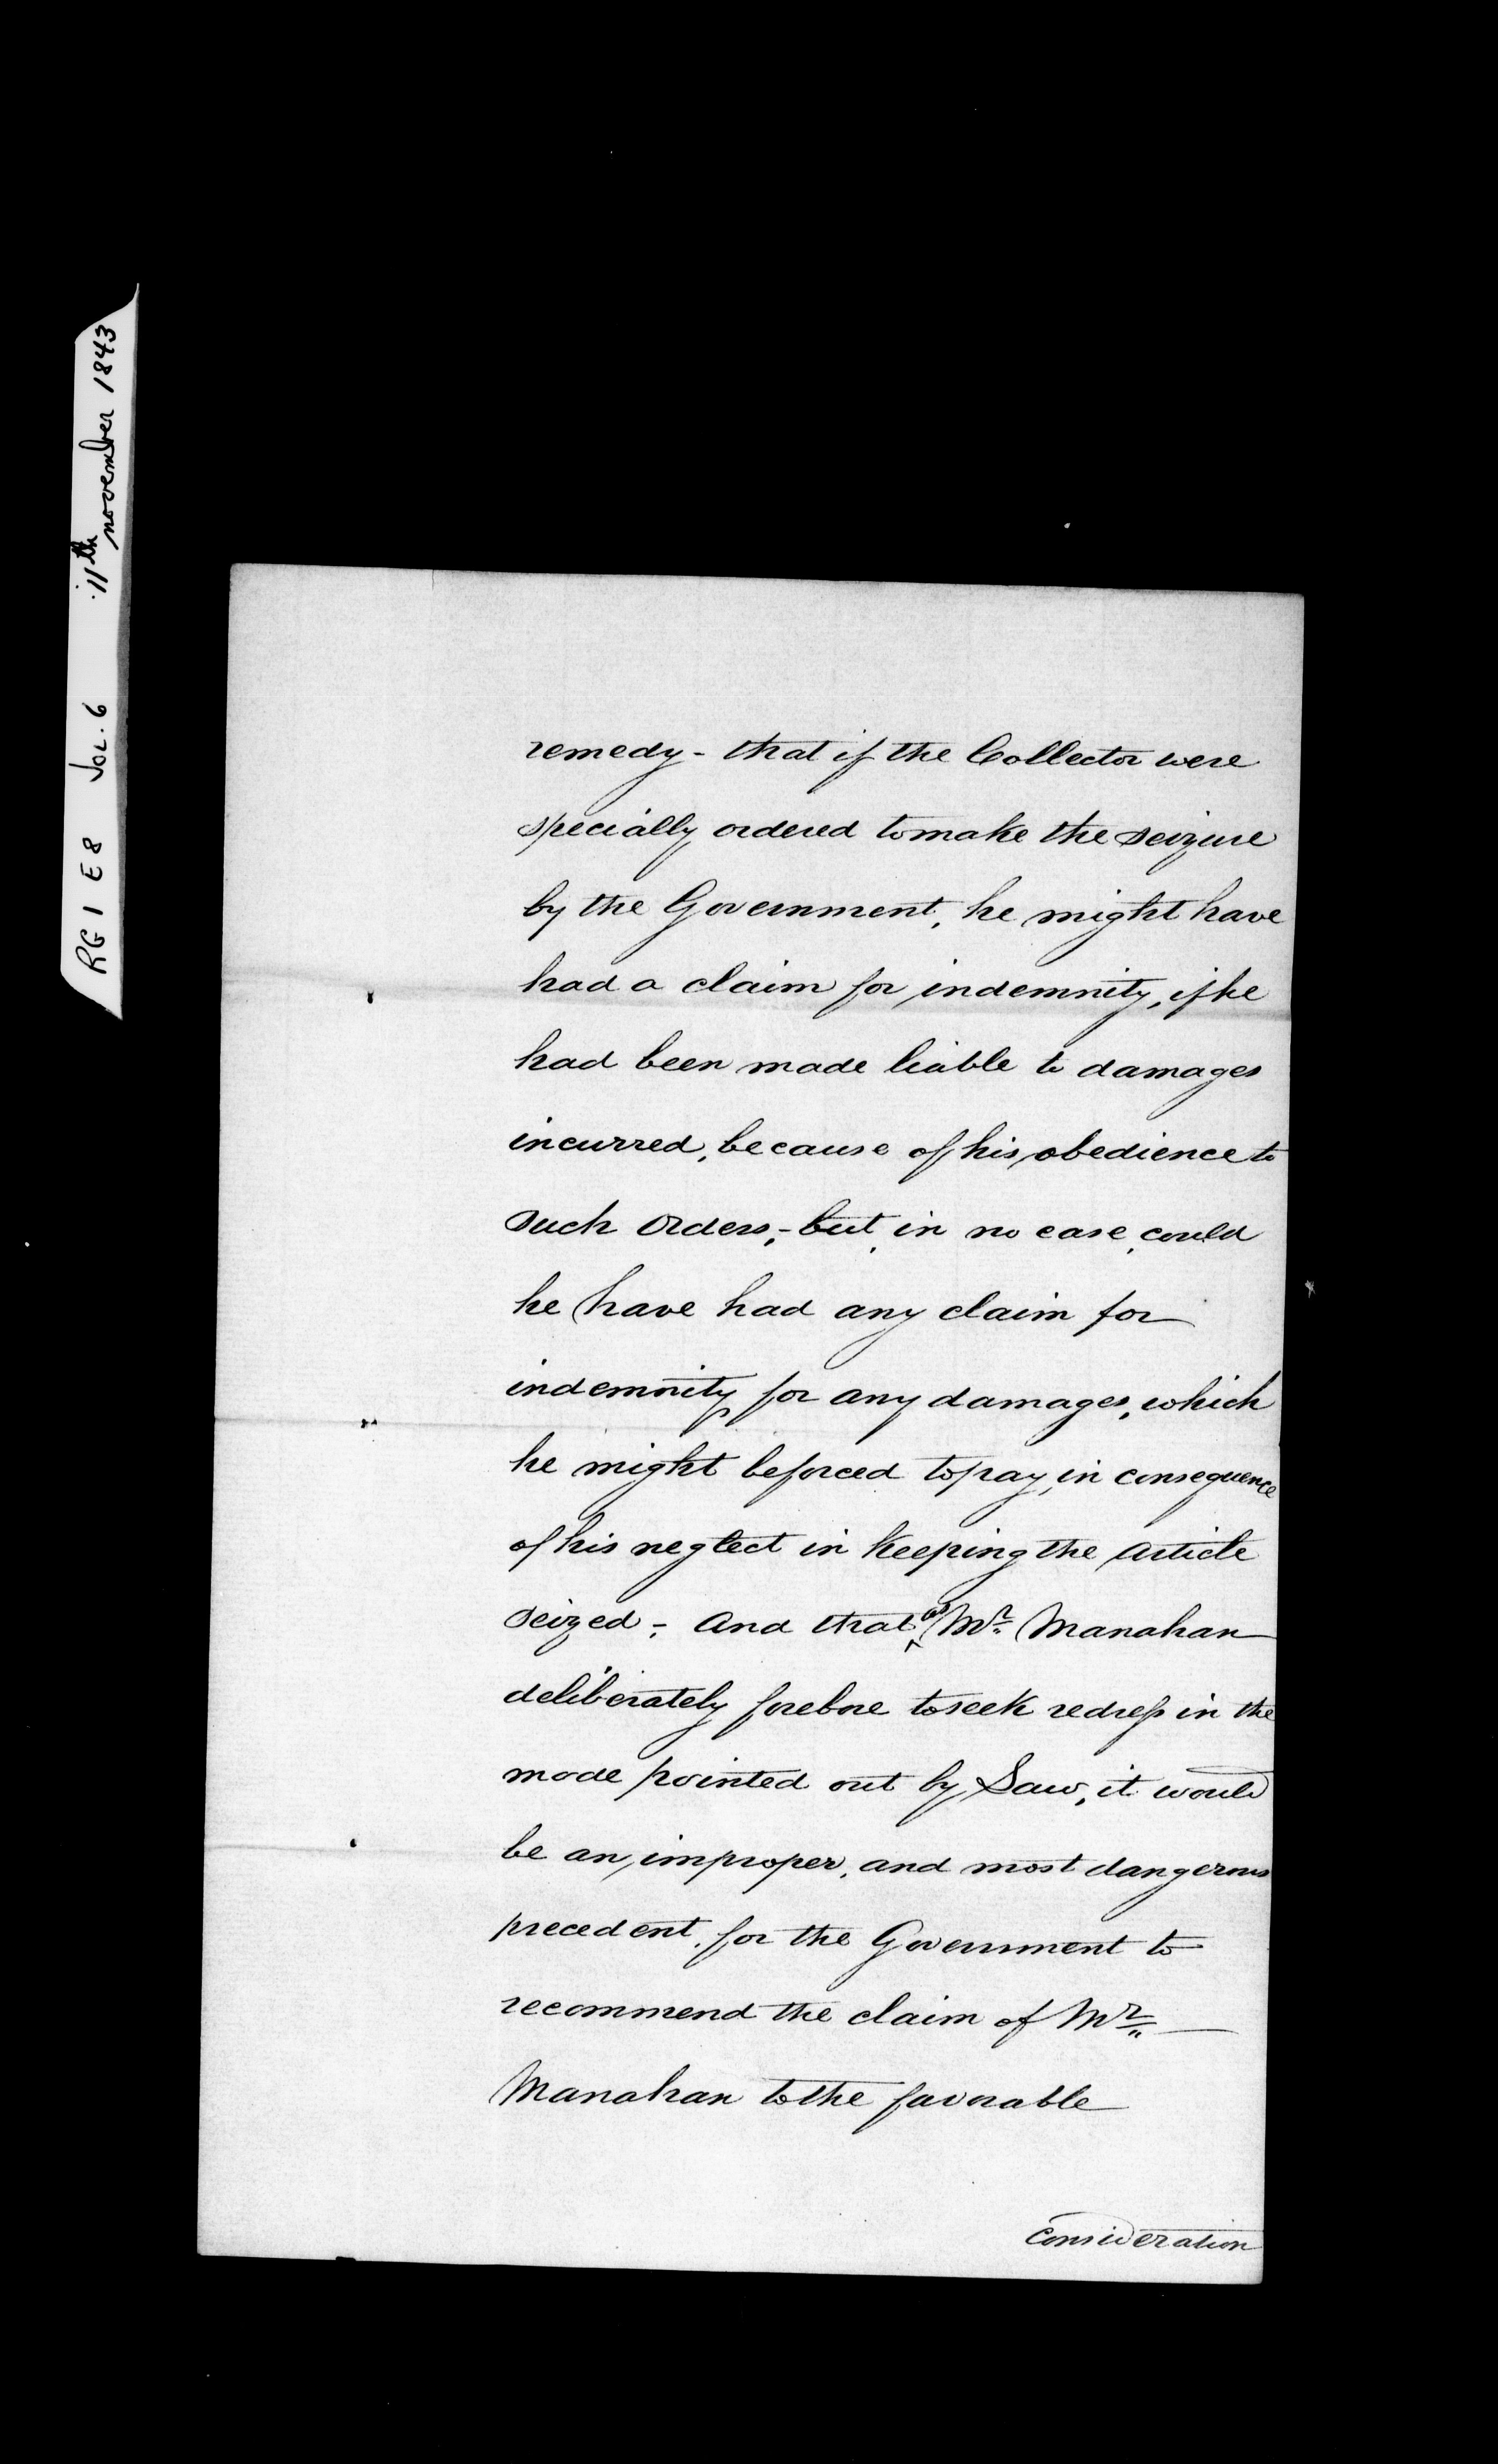 RG 1 E8 Vol. 6 11th november 1843
remedy - that if the Collector were
specially ordered to make the seizure
by the Government, he might have
had a claim for indemnity, if he
had been made liable to damages
incurred, because of his obedience to
such orders, - but, in no case, could
he have had any claim for
indemnity for any damages, which
he might be forced to pay, in consequence
of his neglect in keeping the Article
seized; - And that as Mr. Manahan
deliberately forebore to seek redress in the
mode pointed out by Law, it would
be an improper, and most dangerous
precedent, for the Government to
recommend the claim of Mr.
Manahan to the favorable
Consideration